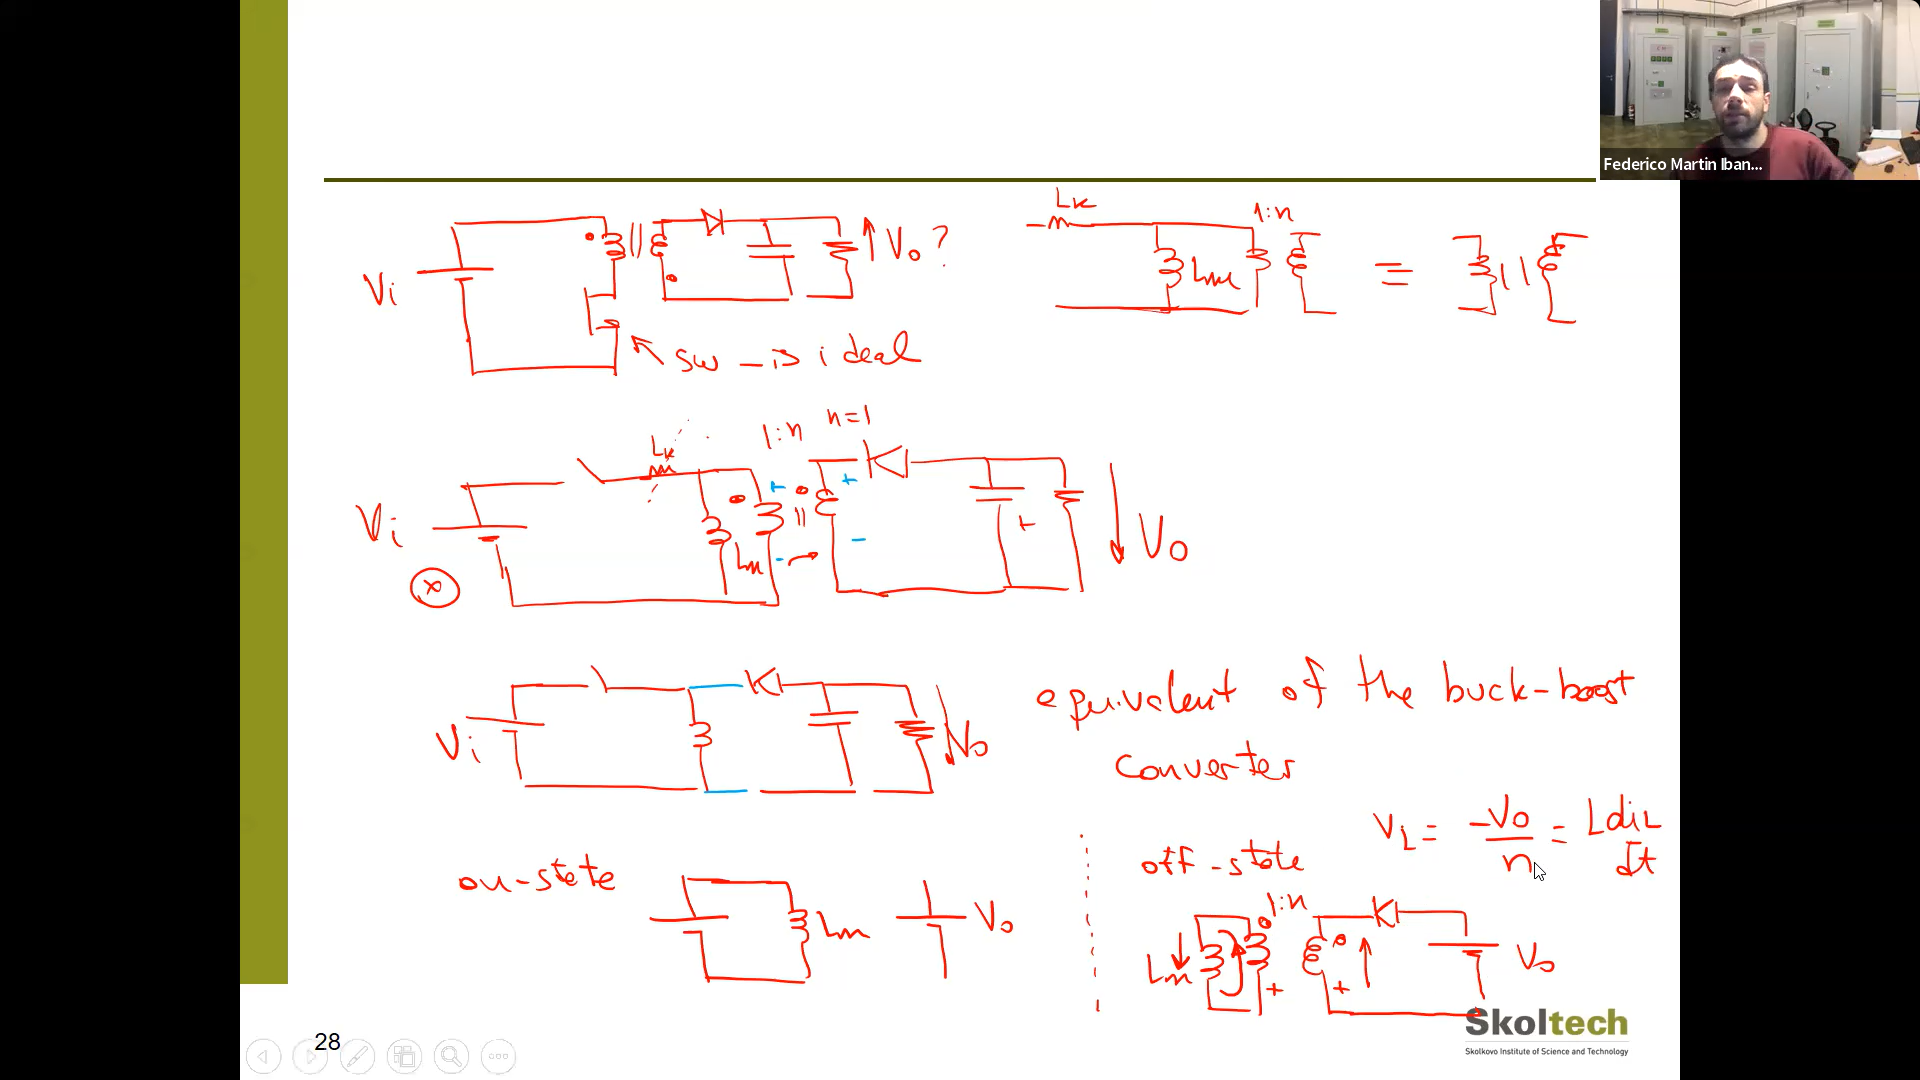 Federico Martin Iban...
Vi
Vo ?
sw _ is ideal
Lk
1:n
Lm
≡
Lk
1:n
n=1
Vi
+
+
Lm
-
-
+
Vo
x
Vi
Vo
equivalent of the buck-boost
converter
VL = -Vo/n = L diL/dt
on-state
Lm
Vo
off-state
1:n
Lm
+
+
Vo
Skoltech
Skolkovo Institute of Science and Technology
28